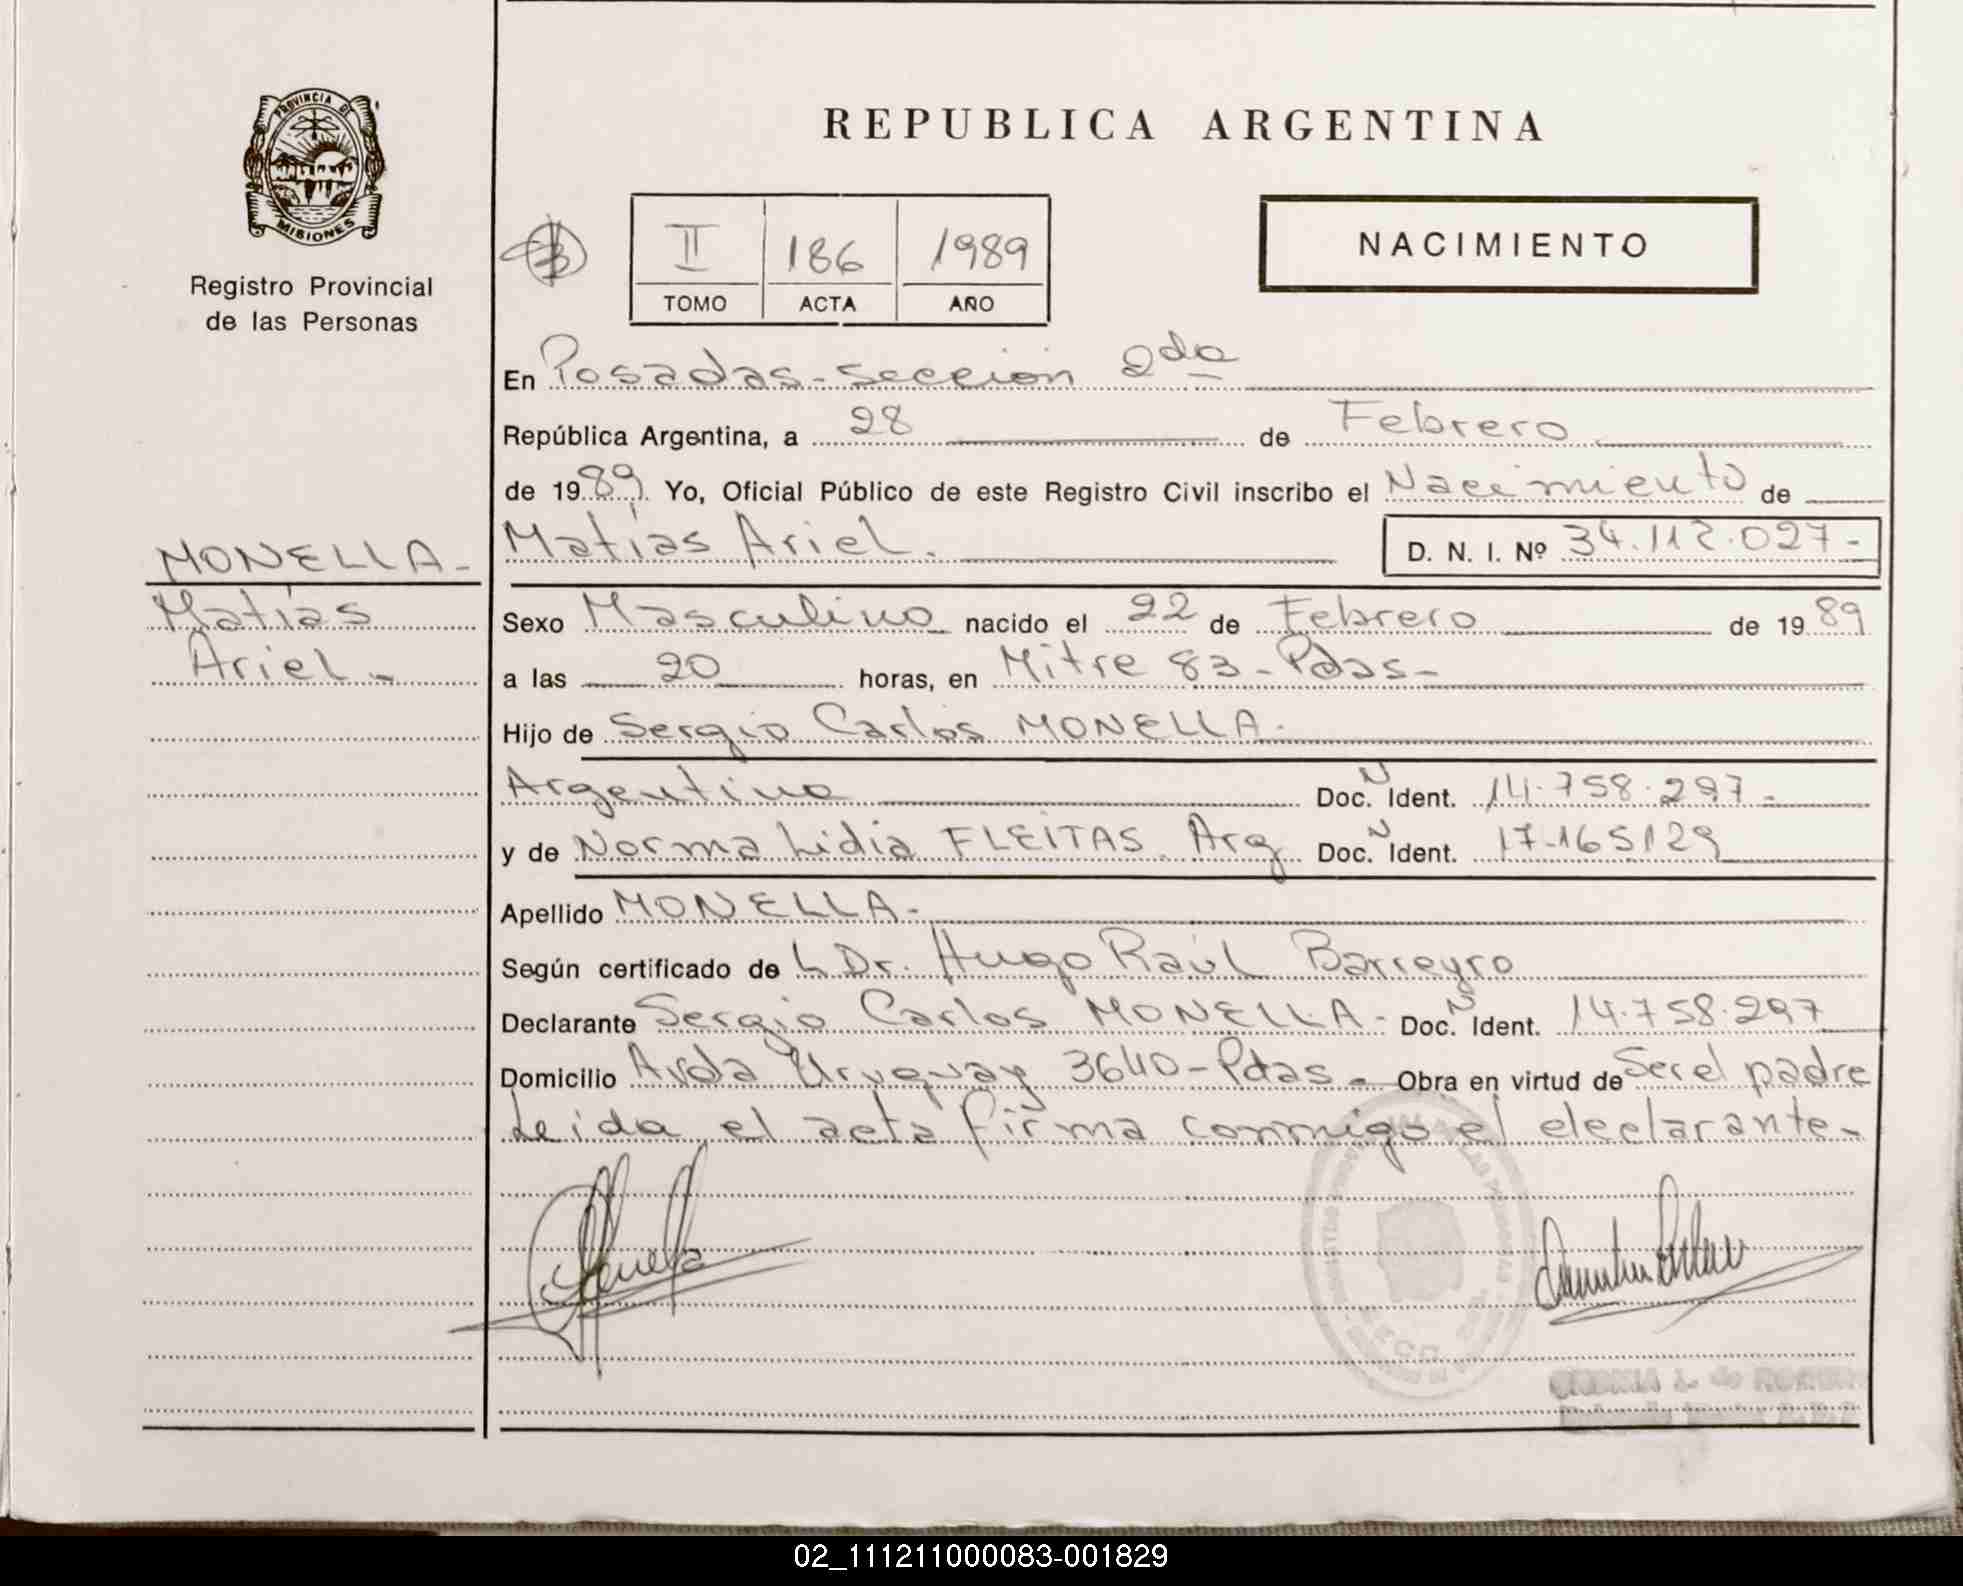 PROVINCIA DE
MISIONES
Registro Provincial
de las Personas
MONELLA-
Matías
Ariel-
REPUBLICA ARGENTINA
II 186 1989
TOMO ACTA AÑO
NACIMIENTO
En Posadas-sección 2da
República Argentina, a 28 de Febrero
de 1989. Yo, Oficial Público de este Registro Civil inscribo el Nacimiento de
Matías Ariel. D. N. I. Nº 34.112.027-
Sexo Masculino nacido el 22 de Febrero de 1989
a las 20 horas, en Mitre 83-Pdas-
Hijo de Sergio Carlos MONELLA-
Argentino Doc. N Ident. 14.758.297-
y de Norma Lidia FLEITAS. Arg Doc. N Ident. 17.165129
Apellido MONELLA-
Según certificado de L Dr. Hugo Raúl Barreyro
Declarante Sergio Carlos MONELLA- Doc. N Ident. 14.758.297
Domicilio Avda Uruguay 3640-Pdas- Obra en virtud de Ser el padre
Leida el acta firma conmigo el declarante-
02_111211000083-001829